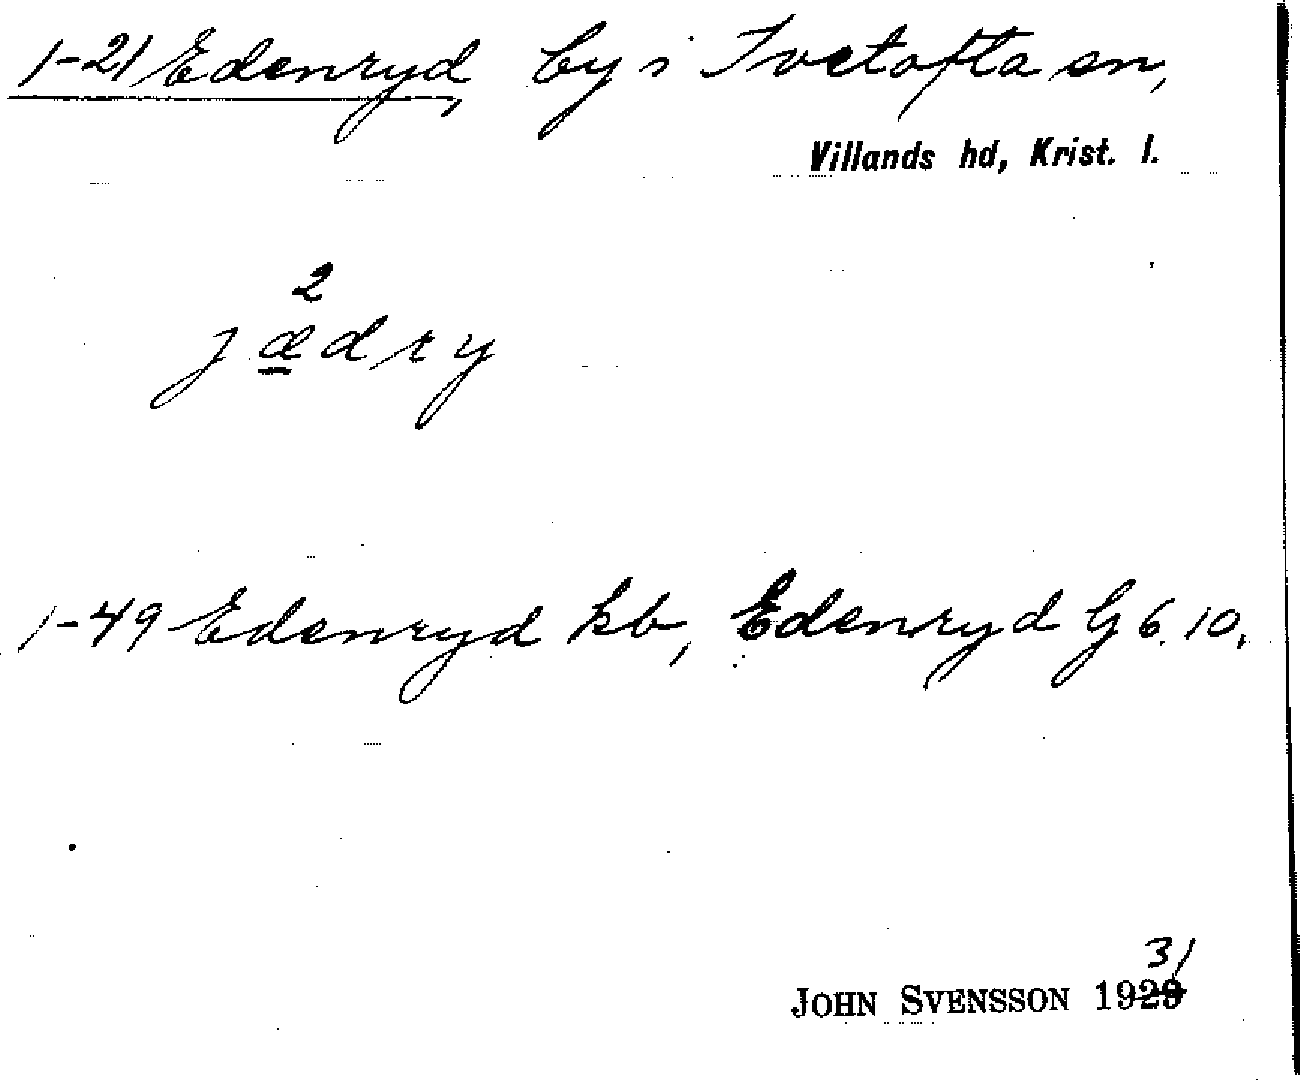 1-21 Edenryd, by i Ivetofta sn,
Villands hd, Krist. l.
2
jædry
1-49 Edenryd kb, Edenryd G 6.10.
31
JOHN SVENSSON 1929